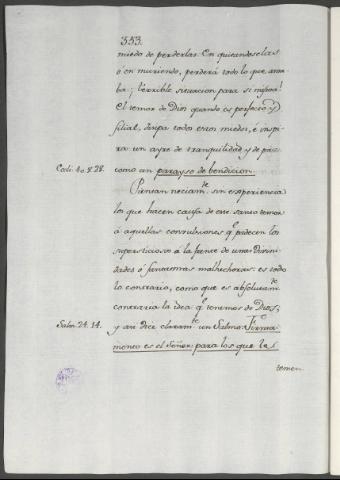 353.
miedo de perderlas. En quitandoselas
ó en muriendo, perderá todo lo que ama-
ba; ¡terrible situacion para si misma!
El temor de Dios quando es perfecto y
filial, disipa todos esos miedos, é inspi-
ra un ayre de tranquilidad y de paz
Ecli. 40. v. 28.
como un parayso de bendicion.
Piensan neciamte. sin experiencia
los que hacen causa de este santo temor
á aquellas convulsiones qe. padecen los
supersticiosos á la frente de unas Divini-
dades ó fantasmas malhechoras: es todo
lo contrario, como que es absolutamte.
contraria la idea qe. tenemos de Dios;
Salm. 24. 14.
y asi dice claramte. un Salmo: Firma-
mento es el Señor para los que le
temen